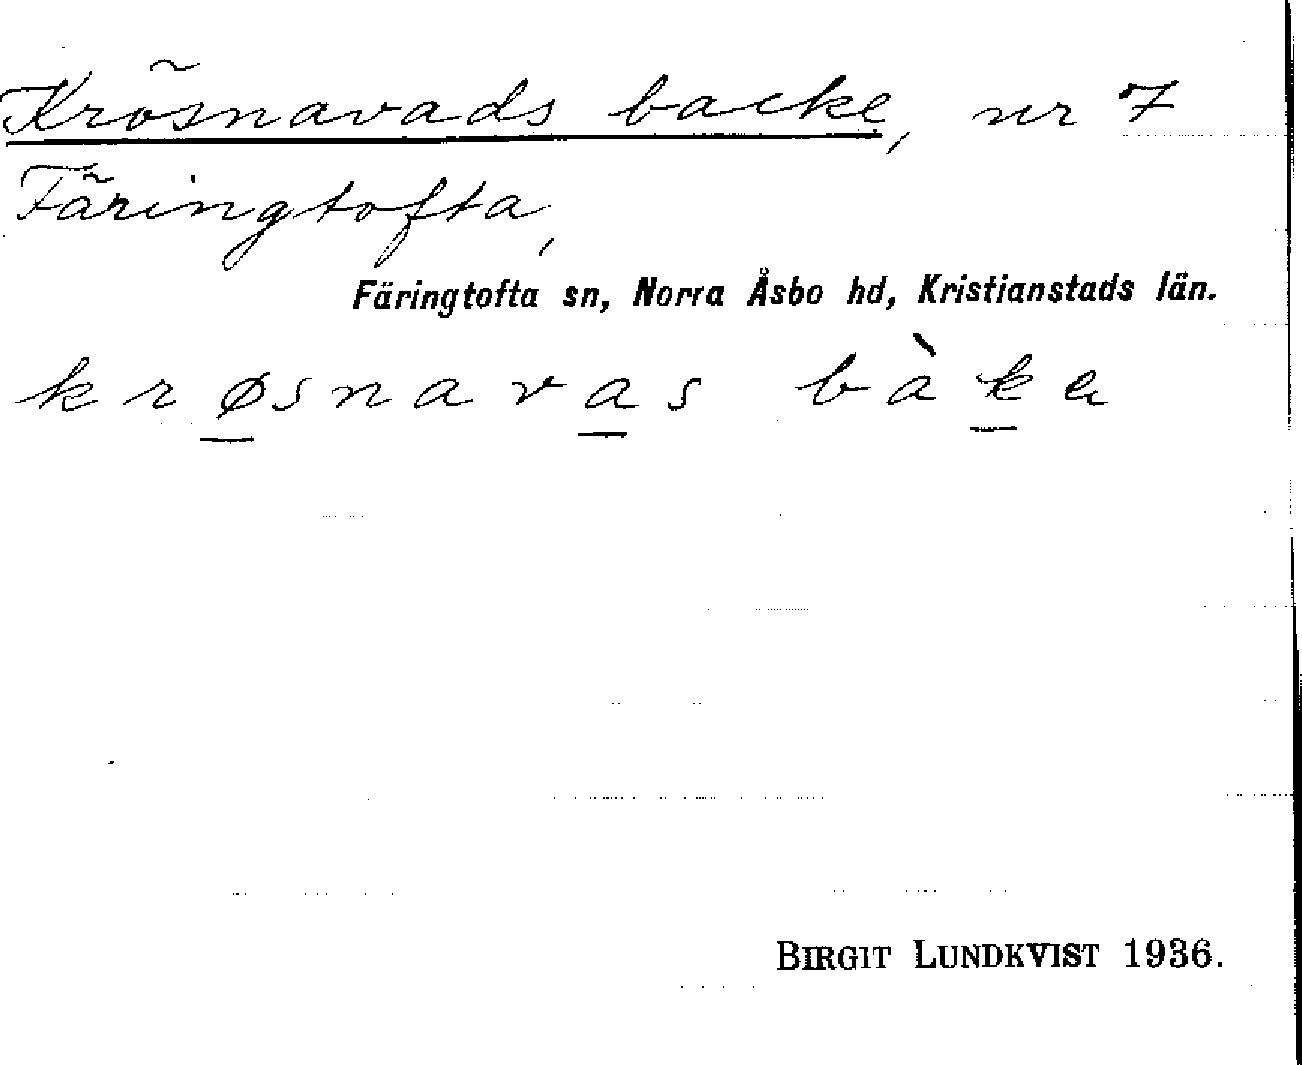 Krösnavads backe, nr 7
Färingtofta,
Färingtofta sn, Norra Åsbo hd, Kristianstads län.
krø̱snava̱s bàḵa
BIRGIT LUNDKVIST 1936.